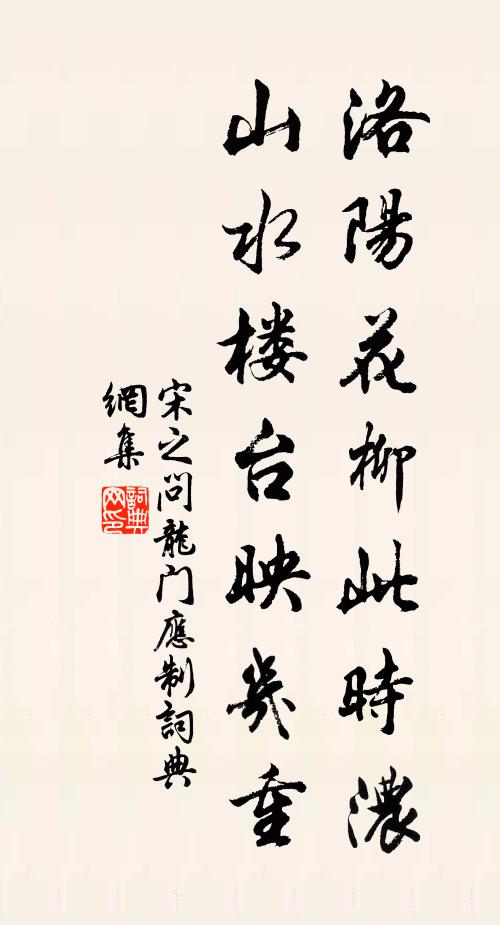 洛陽花柳此時濃
山水楼台映幾重
宋之问龍门應制詞典
網集
詞典
网印